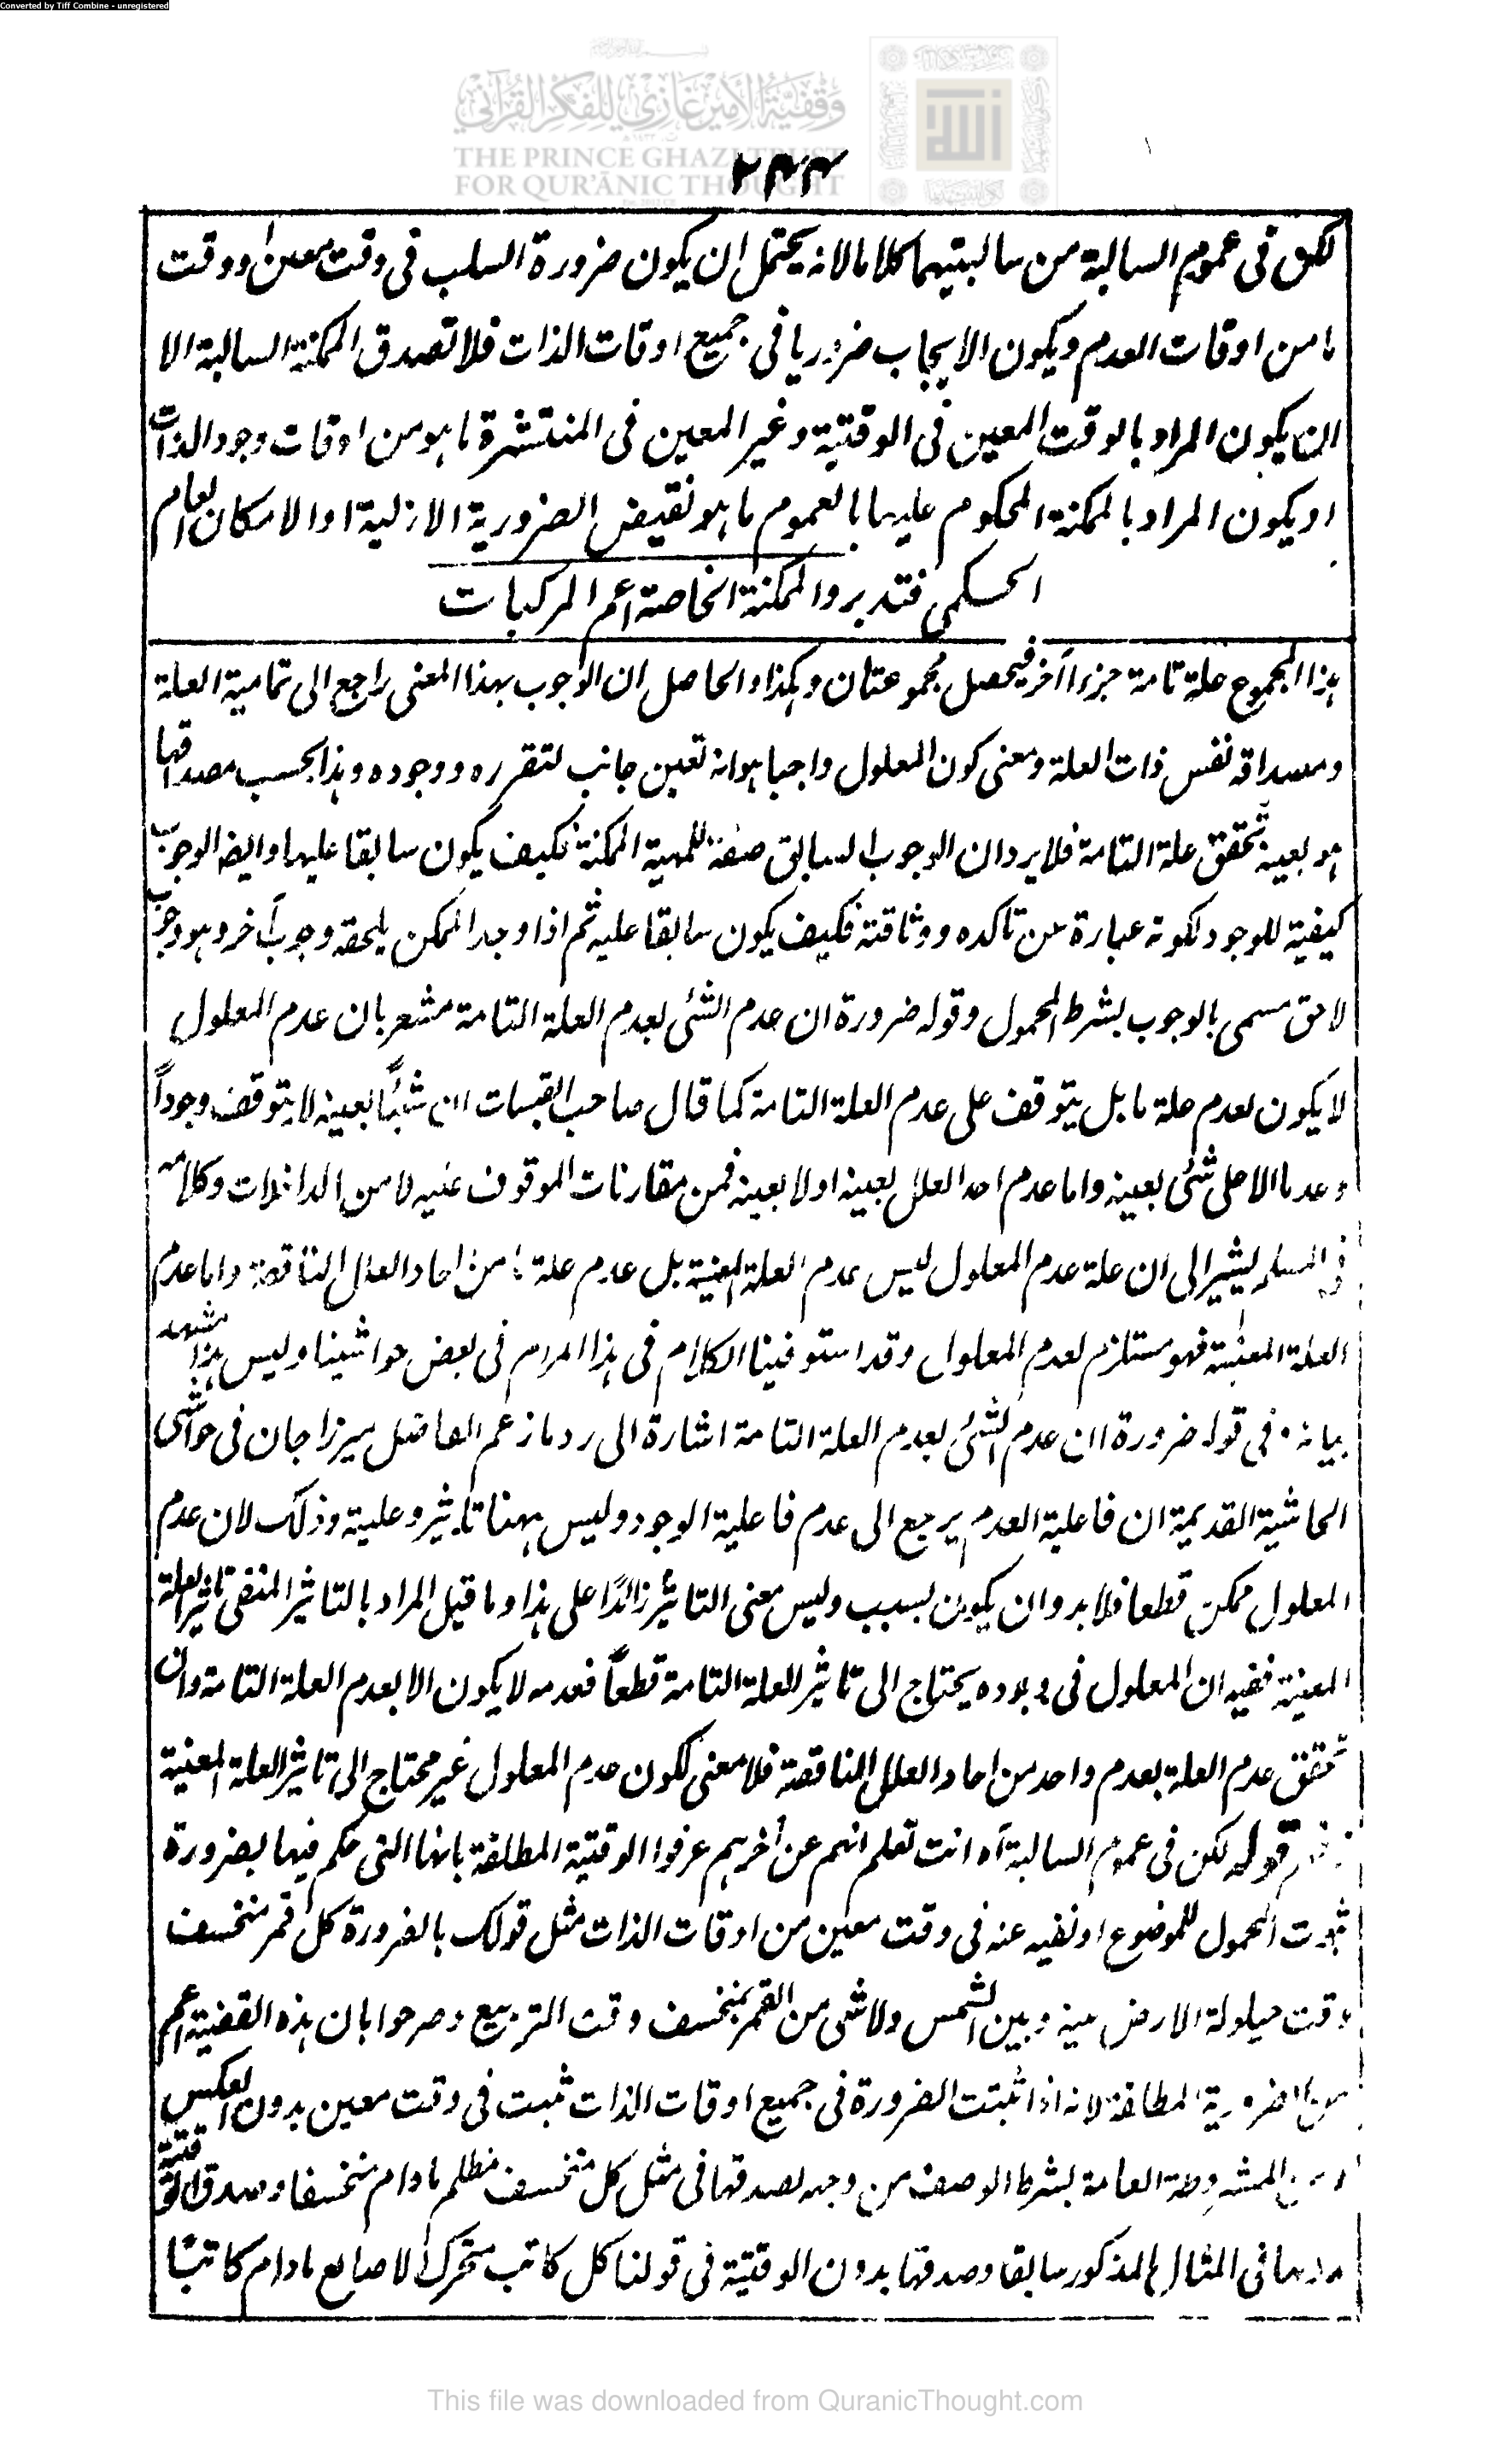 Converted by Tiff Combine - unregistered
وقفية الأمير غازي للفكر القرآني
THE PRINCE GHAZI TRUST
FOR QUR'ĀNIC THOUGHT
٢٤٤
لكن فى عموم السالبة من سالبتيهما كلاما لانه يحتمل ان يكون ضرورة السلب فى وقت معين او وقت
ما من اوقات العدم ويكون الايجاب ضروريا فى جميع اوقات الذات فلا تصدق الممكنة السالبة الا
ان يكون المراد بالوقت المعين فى الوقتية وغير المعين فى المنتشرة ما هو من اوقات وجود الذات
او يكون المراد بالممكنة المحكوم عليها بالعموم ما هو نقيض الضرورية الازلية او الامكان العام
الحكمى فتدبر والممكنة الخاصة اعم المركبات
هذا المجموع علة تامة جزءاً آخر فيحصل مجموعتان وهكذا والحاصل ان الوجوب بهذا المعنى راجع الى تمامية العلة
ومصداقه نفس ذات العلة ومعنى كون المعلول واجبا هو انه تعين جانب لتقرره ووجوده وهذا بحسب مصداقها
هو بعينه تحقق علة التامة فلا يرد ان الوجوب السابق صفة للمهية الممكنة فكيف يكون سابقا عليها وايضا الوجوب
كيفية للوجود لكونه عبارة عن تاكده ووثاقته فكيف يكون سابقا عليه ثم اذا وجد الممكن يلحقه وجوب آخر وهو وجوب
لاحق مسمى بالوجوب بشرط المحمول وقوله ضرورة ان عدم الشئ لعدم العلة التامة مشعر بان عدم المعلول
لا يكون لعدم علة ما بل يتوقف على عدم العلة التامة كما قال صاحب القبسات ان شيئاً بعينه لا يتوقف وجوداً
وعدما الا على شئ بعينه واما عدم احد العلل بعينه اولا بعينه فمن مقارنات الموقوف عليه لا من الداخلات وكلامه
فى السلم يشير الى ان علة عدم المعلول ليس عدم العلة المعينة بل عدم علة ما من احاد العلل الناقصة واما عدم
العلة المعينة فهو مستلزم لعدم المعلول وقد استوفينا الكلام فى هذا المرام فى بعض حواشينا وليس هذا مشهد
بيانه وفى قوله ضرورة ان عدم الشئ لعدم العلة التامة اشارة الى رد ما زعم الفاضل ميرزا جان فى حواشى
الحاشية القديمة ان فاعلية العدم يرجع الى عدم فاعلية الوجود وليس ههنا تاثير وعلية وذلك لان عدم
المعلول ممكن قطعا فلا بد وان يكون لسبب وليس معنى التاثير زائدًا على هذا وما قيل المراد بالتاثير المنفى تاثير العلة
المعينة ففيه ان المعلول فى وجوده يحتاج الى تاثير العلة التامة قطعاً فعدمه لا يكون الا بعدم العلة التامة وان
تحقق عدم العلة بعدم واحد من احاد العلل الناقصة فلا معنى لكون عدم المعلول غير محتاج الى تاثير العلة المعينة
قوله لكن فى عموم السالبة آه انت تعلم انهم عن آخرهم عرفوا الوقتية المطلقة بانها التى حكم فيها بضرورة
ثبوت المحمول للموضوع او نفيه عنه فى وقت معين من اوقات الذات مثل قولك بالضرورة كل قمر منخسف
وقت حيلولة الارض بينه وبين الشمس ولا شئ من القمر بمنخسف وقت التربيع وصرحوا بان هذه القضية اعم
من الضرورية المطلقة لانه اذا ثبتت الضرورة فى جميع اوقات الذات ثبت فى وقت معين بدون العكس
ومن المشروطة العامة بشرط الوصف من وجه لصدقها فى مثل كل منخسف مظلم ما دام منخسفا وصدق الوقتية
بدونها فى المثال المذكور سابقا وصدقها بدون الوقتية فى قولنا كل كاتب متحرك الاصابع ما دام كاتبًا
This file was downloaded from QuranicThought.com